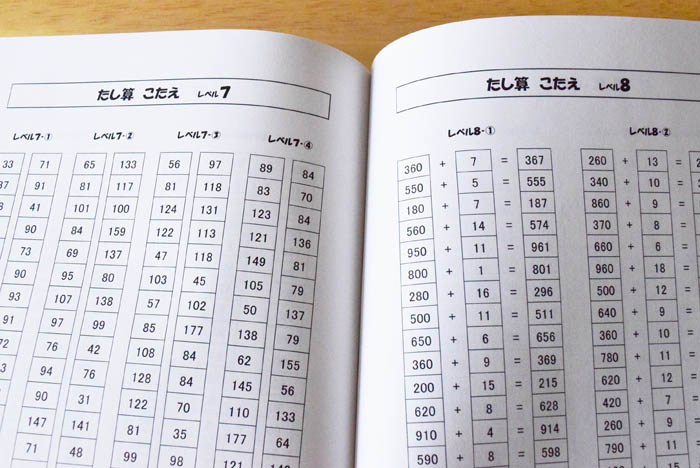 たし算 こたえ レベル7
レベル7-① レベル7-② レベル7-③ レベル7-④
33 71 65 133 56 97 89 84
91 81 117 81 118 83 70
41 101 100 124 131 123 84
90 84 159 122 113 121 136
73 69 137 47 118 149 81
90 95 80 103 45 105 79
93 107 138 57 102 50 137
91 97 99 85 177 138 79
76 42 108 84 62 155
94 76 128 84 145 56
90 31 122 70 110 133
147 141 81 35 177 64
71 48 99 98 121
たし算 こたえ レベル8
レベル8-① レベル8-②
360 + 7 = 367 260 + 13 =
550 + 5 = 555 340 + 10 =
180 + 7 = 187 860 + 9 =
560 + 14 = 574 370 + 8 =
950 + 11 = 961 660 + 6 =
800 + 1 = 801 960 + 18 =
280 + 16 = 296 500 + 12 =
500 + 11 = 511 640 + 9 =
650 + 6 = 656 360 + 10 =
360 + 9 = 369 780 + 11 =
200 + 15 = 215 620 + 12 =
620 + 8 = 628 420 + 7 =
910 + 4 = 914 260 + 9 =
590 + 8 = 598 790 + 11 =